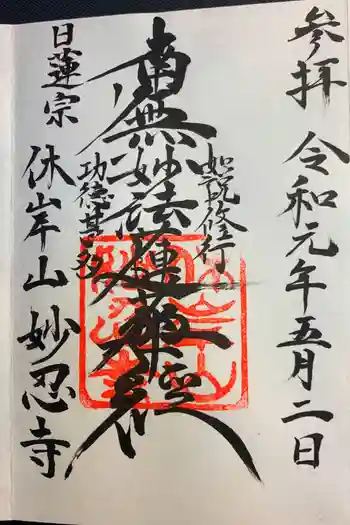 参拝 令和元年五月二日
如説修行
南無妙法蓮華経
功徳甚多
日蓮宗
休岸山 妙忍寺